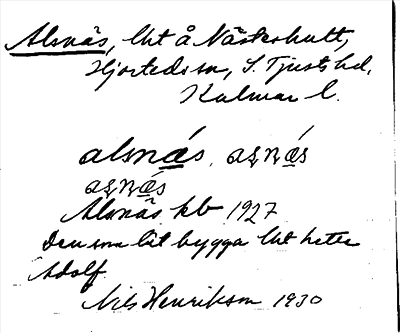 Alsnäs, lht å Västerhult,
Hjorteds sn, S. Tjusts hd,
Kalmar l.
alsnǟs, aṣṇä́s
aṣṇä́s
Alsnäs kb 1927
Den som lät bygga lht hette
Adolf.
Nils Henriksson 1930